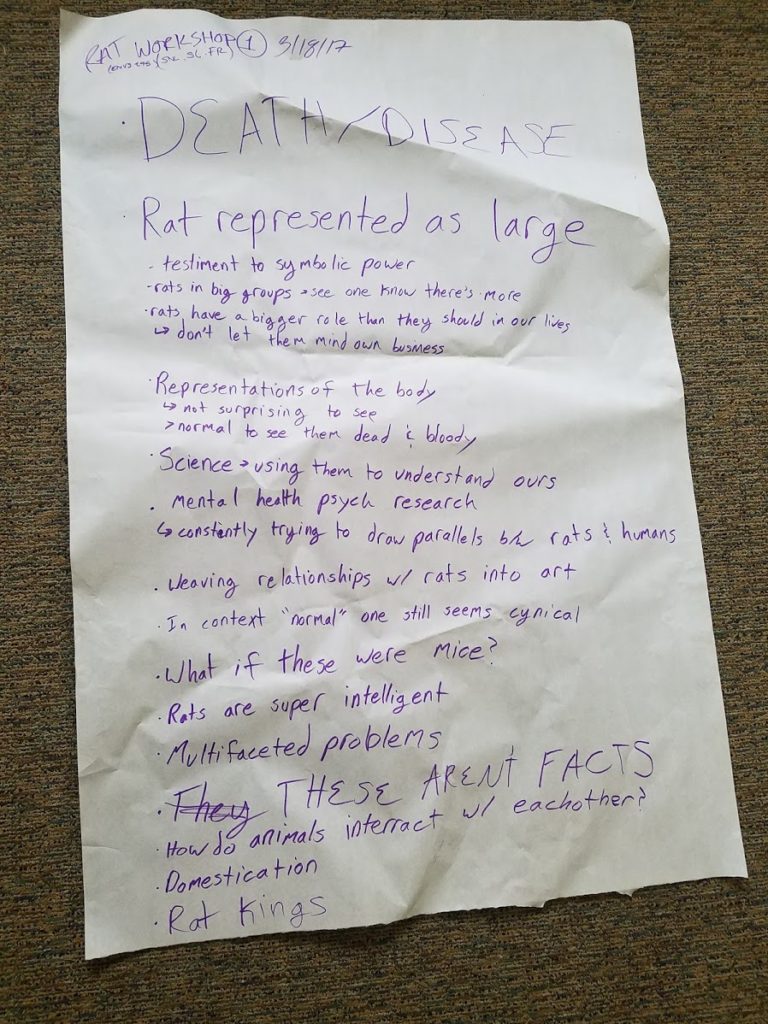 RAT WORKSHOP ① 3/18/17
· DEATH/DISEASE
· Rat represented as large
- testiment to symbolic power
- rats in big groups → see one know there's more
- rats have a bigger role than they should in our lives
↳ don't let them mind own business
· Representations of the body
↳ not surprising to see
> normal to see them dead & bloody
· Science → using them to understand ours
· mental health psych research
↳ constantly trying to draw parallels b/w rats & humans
· Weaving relationships w/ rats into art
· In context "normal" one still seems cynical
· What if these were mice?
· Rats are super intelligent
· Multifaceted problems
· They THESE ARENT FACTS
· How do animals interract w/ eachother?
· Domestication
· Rat Kings